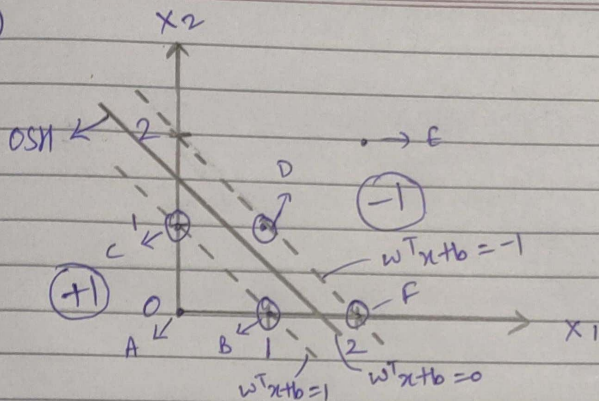 )
X2
OSH
2
E
D
-1
1
C
wᵀx+b=-1
+1
0
F
A
B
1
2
X1
wᵀx+b=1
wᵀx+b=0